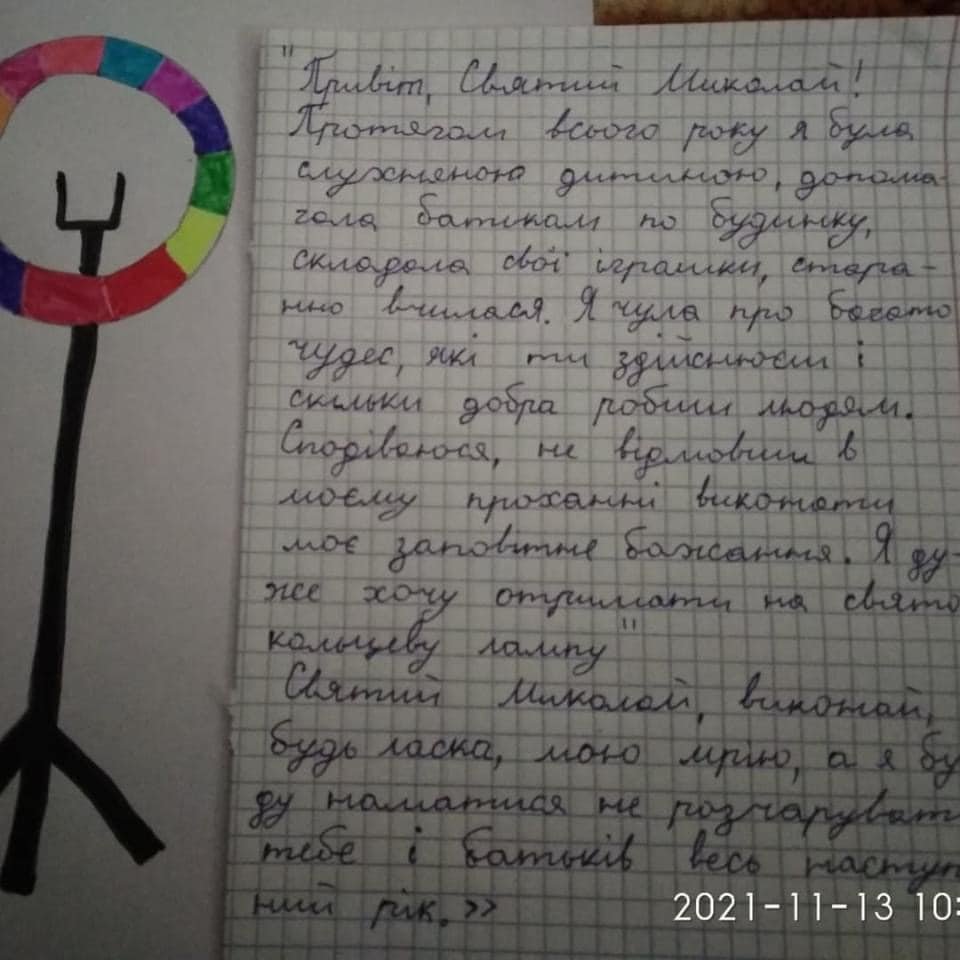 "Привіт, Святий Миколай!
Протягом всього року я була
слухняною дитиною, допома-
гала батькам по будинку,
складала свої іграшки, стара-
нно вчилася. Я чула про багато
чудес, які ти здійснюєш і
скільки добра робиш людям.
Сподіваюся, не відмовиш в
моєму проханні виконати
моє заповітне бажання. Я ду-
же хочу отримати на свято
кольцеву лампу"
Святий Миколай, виконай,
будь ласка, мою мрію, а я бу
ду намагатися не розчарувати
тебе і батьків весь наступ
ний рік.»
2021-11-13 10: